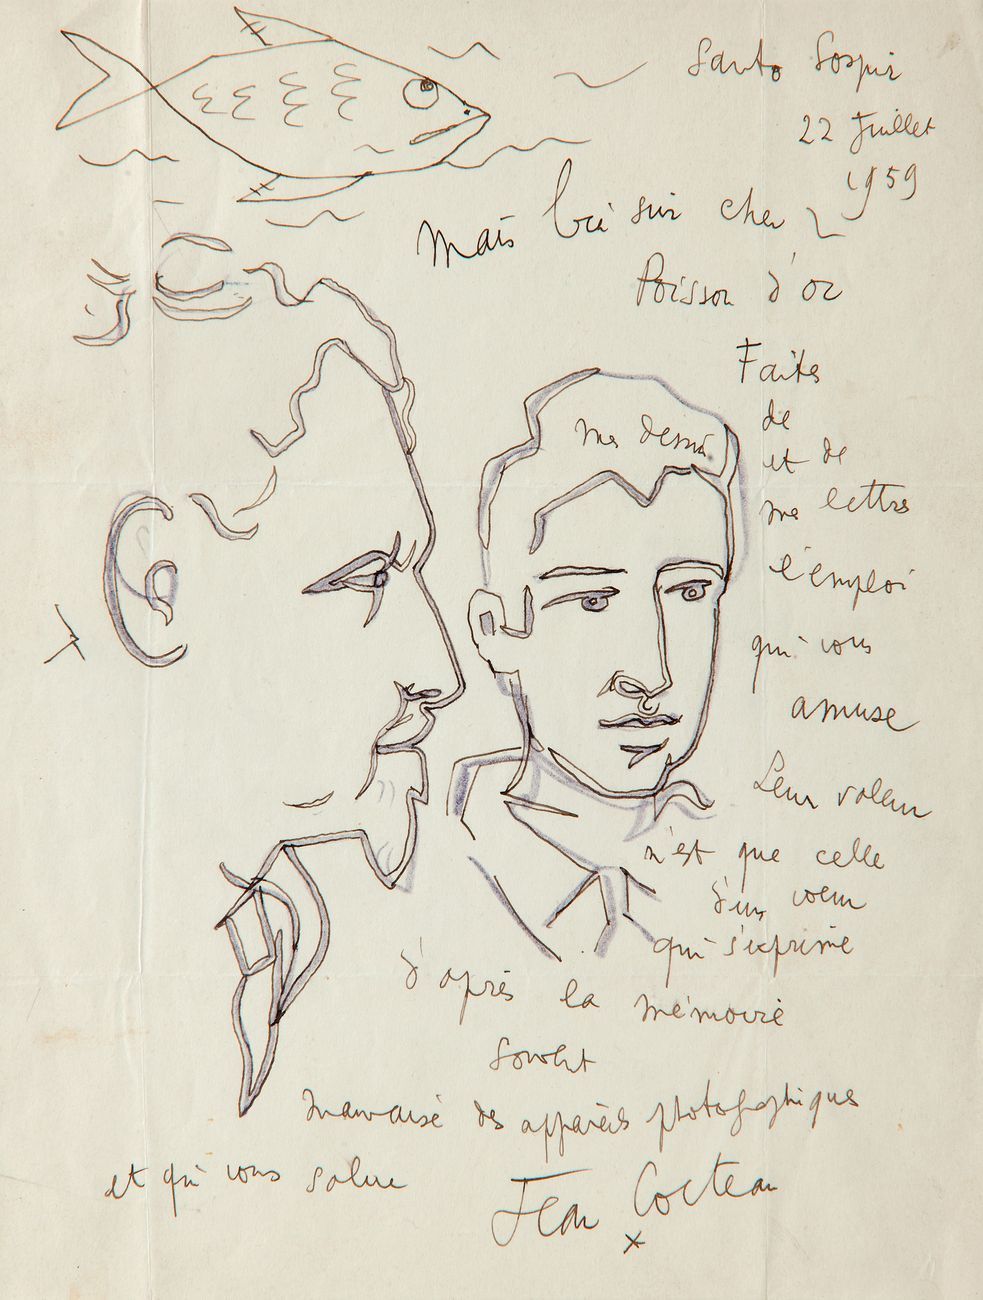 Santo Sospir
22 Juillet
1959
Mais bié sûr cher
Poisson d'or
Faites
de
mes dessins
et de
mes lettres
l'emploi
qui vous
amuse
Leur valeur
n'est que celle
d'un cœur
qui s'exprime
d'après la mémoire
souvent
mauvaise des appareils photographiques
et qui vous salue
Jean Cocteau